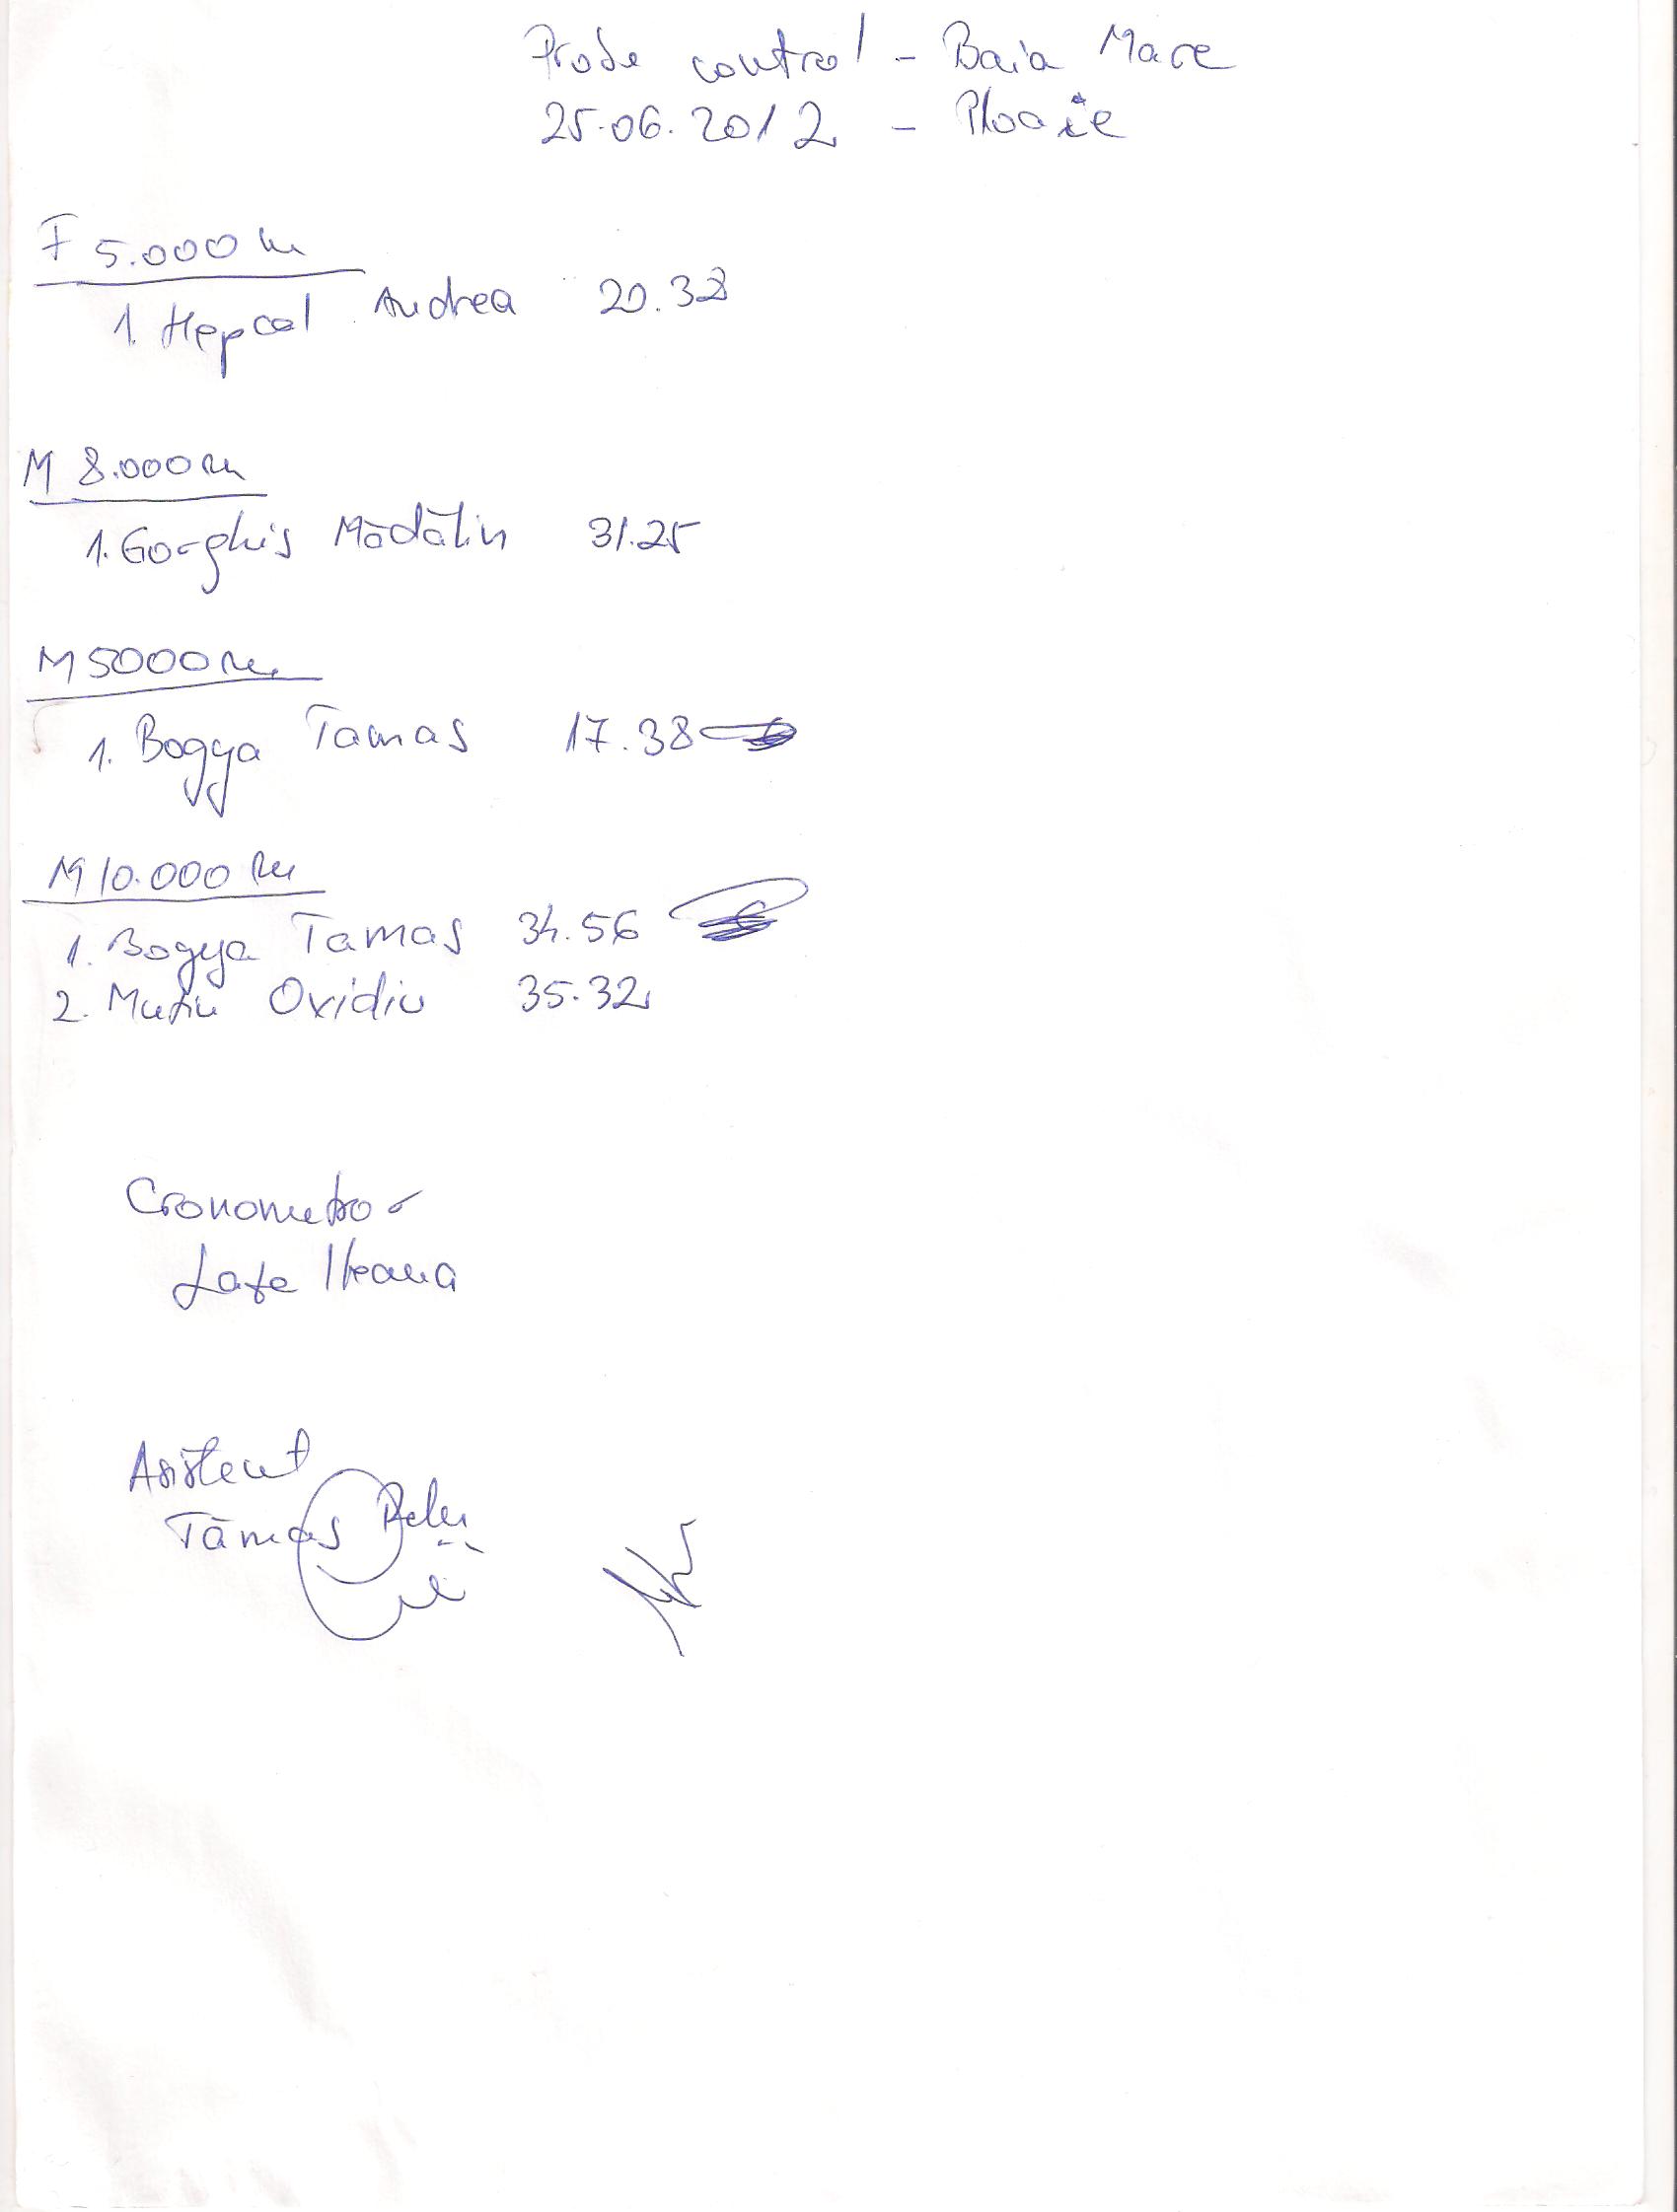 Probe control - Baia Mare
25.06.2012 - Ploaie
F 5.000 m
1. Hepcal Andrea 20.38
M 8.000 m
1. Gorghis Mădălin 31.25
M 5000 m
1. Bogya Tamas 17.38
M 10.000 m
1. Bogya Tamas 34.56
2. Mutiu Ovidiu 35.32
Cronometror
Ileana
Asistent
Tămas